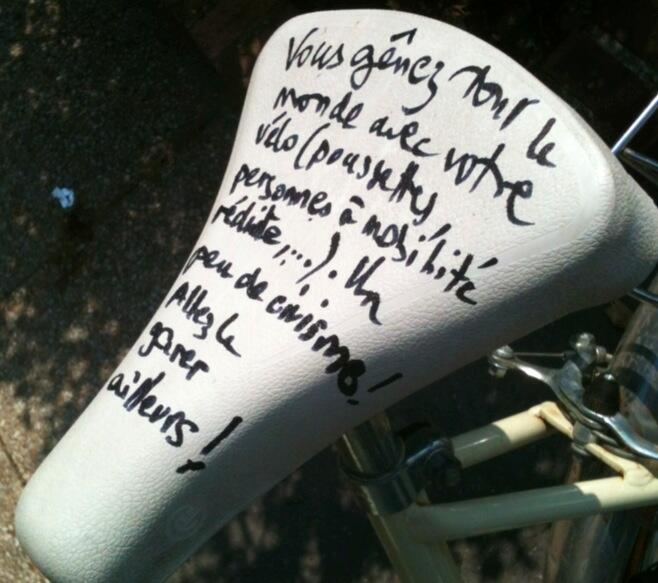 Vous gênez tout le
monde avec votre
vélo (poussettes,
personnes à mobilité
réduite,...). Un
peu de civisme!
Allez le
garer
ailleurs!